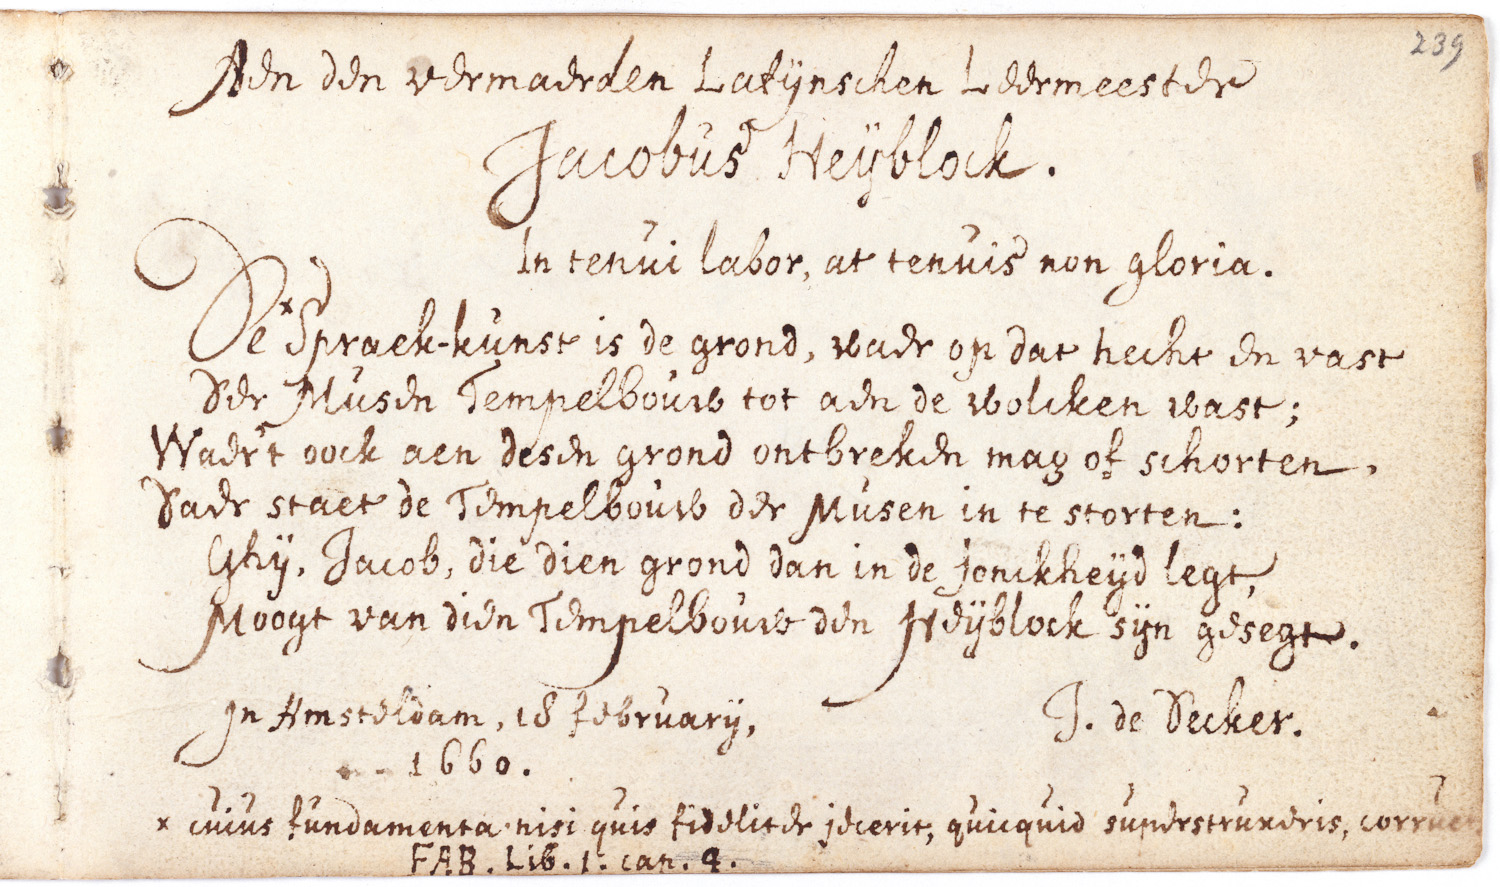 239
Aen den vermaerden Latÿnschen Leermeester
Jacobus Heÿblock.
In tenui labor, at tenuis non gloria.
De × Spraek-kunst is de grond, waer op dat hecht en vast
Der Musen Tempelbouw tot aen de wolcken wast;
Waer't oock aen desen grond ontbreken mag of schorten,
Daer staet de Tempelbouw der Musen in te storten:
Ghÿ, Jacob, die dien grond dan in de Jonckheÿd legt,
Moogt van dien Tempelbouw den Heÿblock sÿn gesegt.
In Amsteldam, 18 februarÿ, J. de Decker.
1660.
× cuius fundamenta nisi quis fideliter jecerit, quicquid superstruxeris, corruet
FAB. Lib. 1. cap. 4.